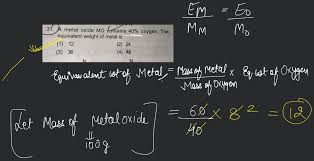 31. A metal oxide MO contains 40% oxygen. The
equivalent weight of metal is
(1) 12 (2) 24
(3) 36 (4) 48
E_M / M_M = E_O / M_O
Equivalent wt of Metal = Mass of Metal / Mass of Oxygen × Eq. wt of Oxygen
= 60 / 40 × 8 2 = 12
[Let Mass of Metal oxide
100g]